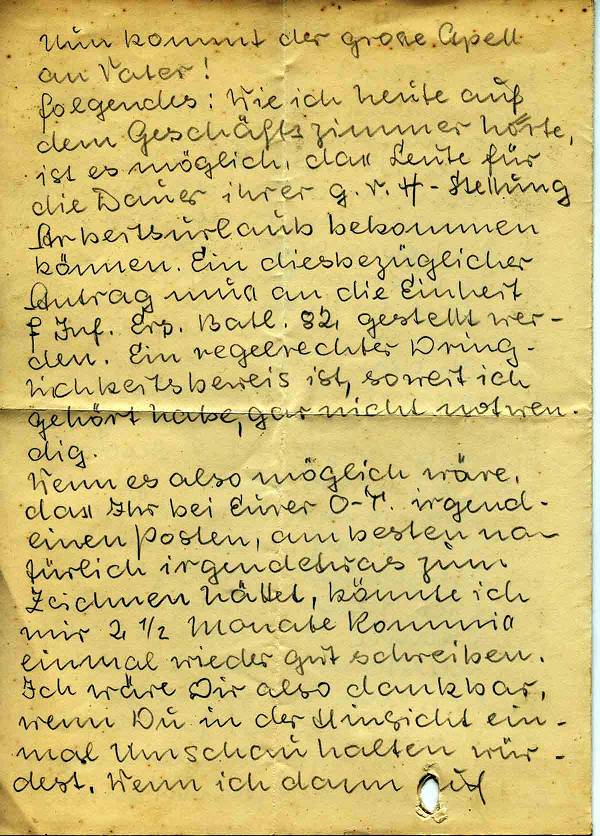 Nun kommt der große Apell
an Vater!
Folgendes: Wie ich heute auf
dem Geschäftszimmer hörte,
ist es möglich, daß Leute für
die Dauer ihrer g.v.H-Stellung
Arbeitsurlaub bekommen
können. Ein diesbezüglicher
Antrag muß an die Einheit
f Inf. Ers. Batl. 82, gestellt wer-
den. Ein regelrechter Dring-
lichkeitsbeweis ist, soweit ich
gehört habe, gar nicht notwen-
dig.
Wenn es also möglich wäre,
daß Ihr bei Eurer O-T. irgend-
einen Posten, am besten na-
türlich irgendetwas zum
Zeichnen hättet, könnte ich
mir 2 1/2 Monate Kommiß
einmal wieder gut schreiben.
Ich wäre Dir also dankbar,
wenn Du in der Hinsicht ein-
mal Umschau halten wür-
dest. Wenn ich dann auf